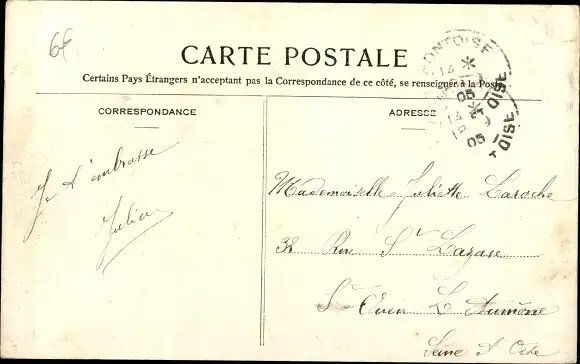 6€
CARTE POSTALE
Certains Pays Étrangers n'acceptant pas la Correspondance de ce côté, se renseigner à la Poste
CORRESPONDANCE
ADRESSE
PONTOISE
14
05
OISE
14
05
OISE
Je t'embrasse
Julien
Mademoiselle Juliette Laroche
38 Rue St Lazare
St Ouen L'Aumône
Seine et Oise